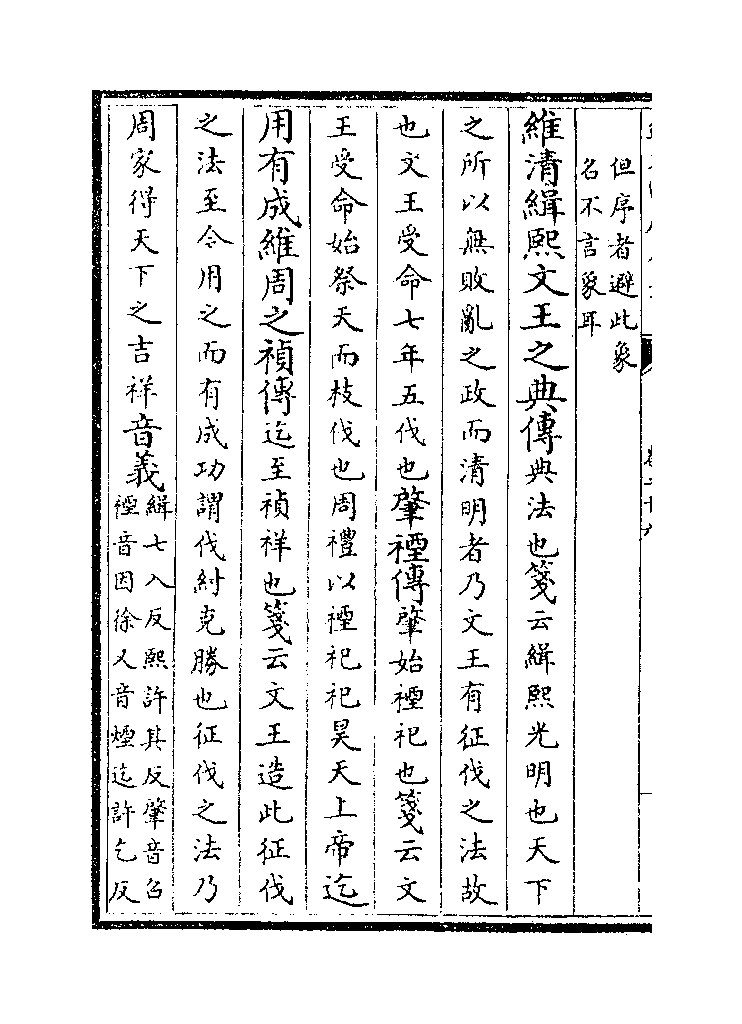 但序者避此象
名不言象耳
維清緝熙文王之典傳典法也箋云緝熙光明也天下
之所以無敗亂之政而清明者乃文王有征伐之法故
也文王受命七年五伐也肇禋傳肇始禋祀也箋云文
王受命始祭天而枝伐也周禮以禋祀祀昊天上帝迄
用有成維周之禎傳迄至禎祥也箋云文王造此征伐
之法至今用之而有成功謂伐紂克勝也征伐之法乃
周家得天下之吉祥音義緝七入反熙許其反肇音召
禋音因徐又音煙迄許乞反